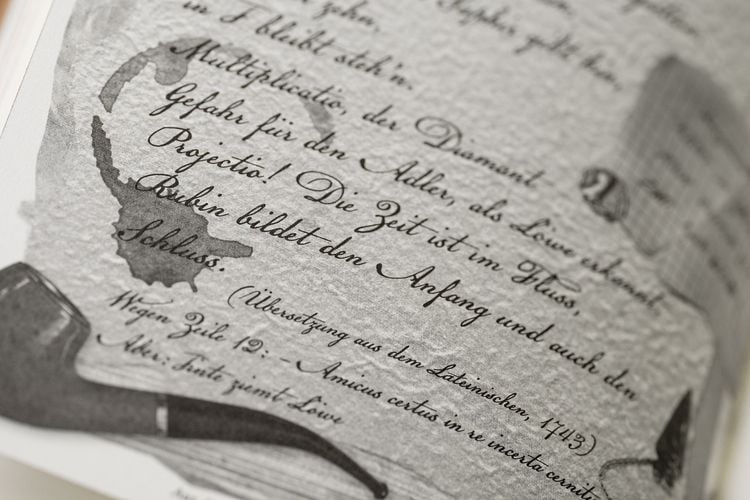 zehn,
in F bleibt steh'n.
gilt hin,
Multiplicatio, der Diamant
Gefahr für den Adler, als Löwe erkannt
Projectio! Die Zeit ist im Fluss,
Rubin bildet den Anfang und auch den
Schluss.
(Übersetzung aus dem Lateinischen, 1743)
Wegen Zeile 12: – Amicus certus in re incerta cernit
Aber: Tinte ziemt Löwe